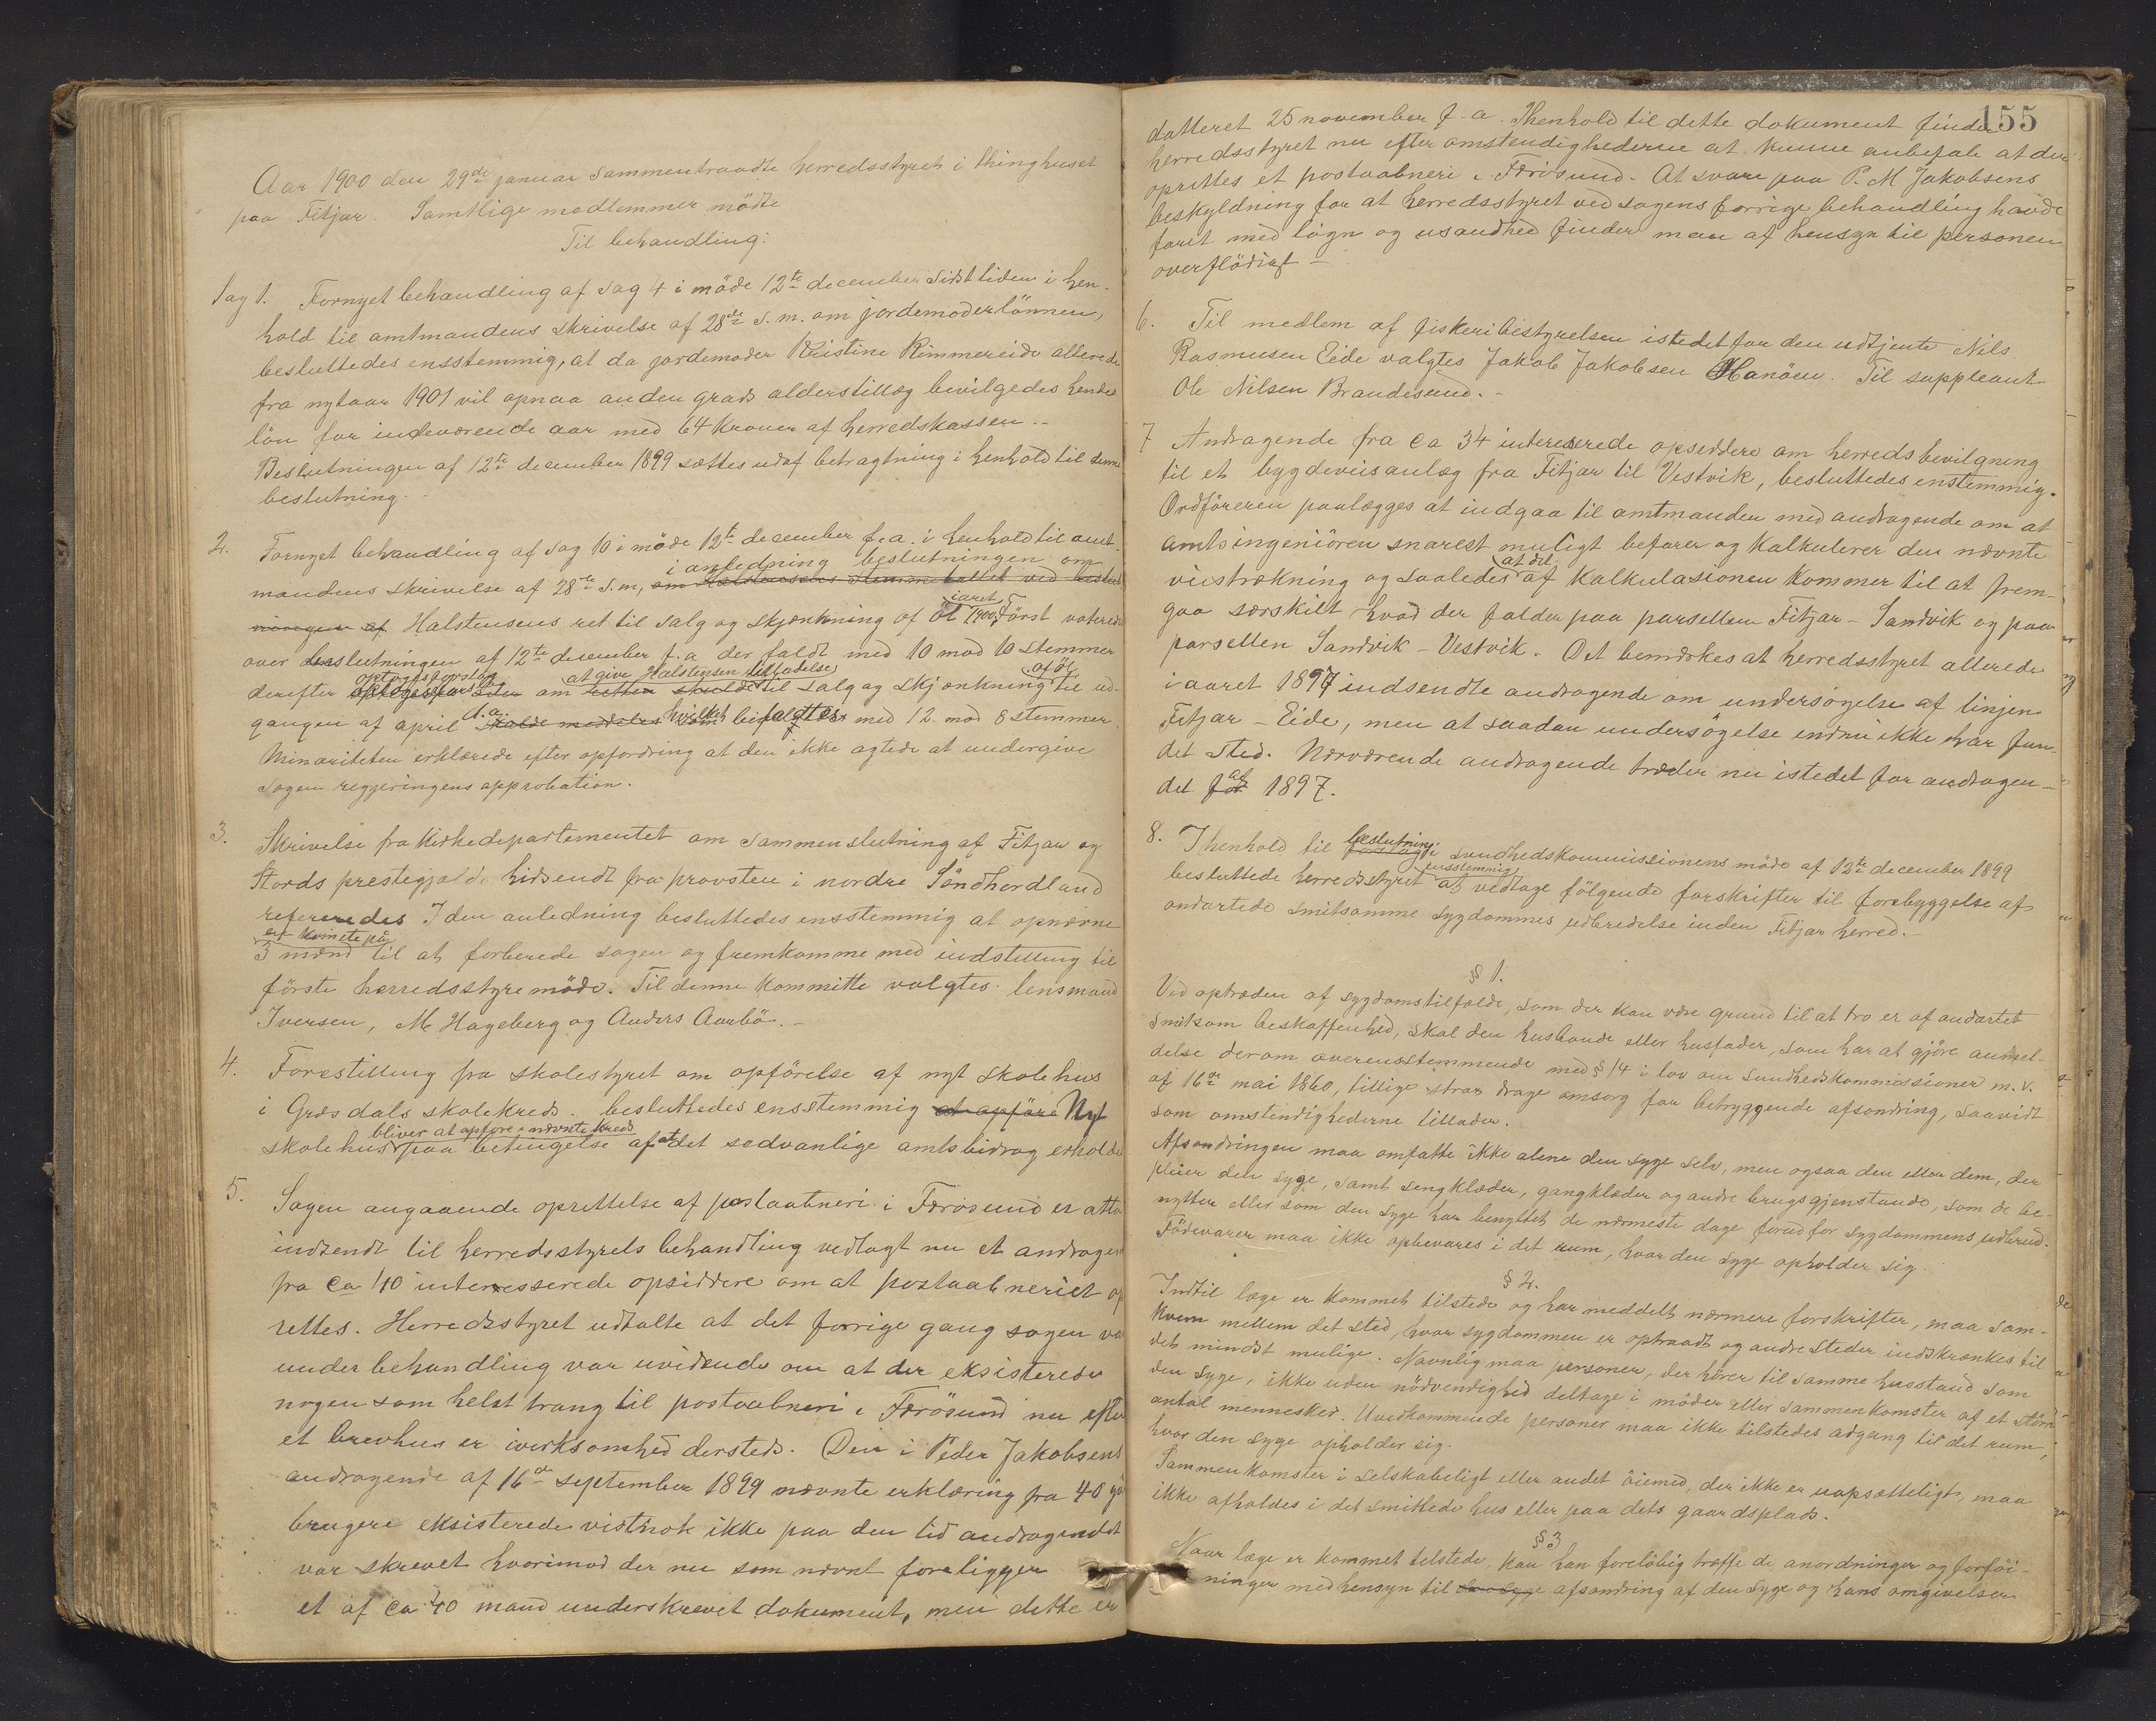 Aar 1900 den 29de januar sammentraadte herredsstyret i thinghuset
paa Fitjar. Samtlige medlemmer mödte
Til behandling:
Sag 1. Fornyet behandling af sag 4 i möde 12te december sidstliden i hen-
hold til amtmandens skrivelse af 28de s.m. om jordemoderlönnen,
besluttedes ensstemmig, at da jordemoder Kristine Rimmereide allerede
fra nytaar 1901 vil opnaa anden grads alderstillæg bevilgedes hendes
lön for indeværende aar med 64 kroner af herredskassen..
Beslutningen af 12te december 1899 sættes ud af betragtning i henhold til denne
beslutning.
2. Fornyet behandling af sag 10 i möde 12te december f.a. i henhold til amt-
i anledning beslutningen om
mandens skrivelse af 28de s.m,
iaaret
Halstensens ret til salg og skjænkning af öl 1900. Först votered
over beslutningen af 12te december f.a der faldt med 10 mod 10 stemmer
optoges forslag at give Halstensen tilladelse af öl
derefter om til salg og skjænkning til ud-
gangen af april d.a. hvilket bifaldtes med 12 mod 8 stemmer.
Minoriteten erklærede efter opfordring at den ikke agtede at undergive
sagen regjeringens approbation.
3. Skrivelse fra Kirkedepartementet om sammenslutning af Fitjar og
Stords prestegjæld hidsendt fra provsten i nordre Söndhordland
refereredes I den anledning besluttedes ensstemmig at opnævne
en komite på
3 mænd til at forberede sagen og fremkomme med indstilling til
förste herredsstyremöde. Til denne kommitte valgtes. lensmand
Iversen, M Hageberg og Anders Aarbö.-
4. Forestilling fra skolestyret om opförelse af nyt skolehus
i Græsdals skolekreds. besluttedes ensstemmig at opföre Nyt
bliver at opföre i nævnte kreds
skolehus paa betingelse af at det sedvanlige amtsbidrag erholdes
5. Sagen angaaende oprettelse af postaabneri i Færösund er atter
indsendt til herredsstyrets behandling vedlagt nu et andragen
fra ca 40 interesserede opsiddere om at postaabneriet op
rettes. Herredsstyret udtalte at det forrige gang sagen var
under behandling var uvidende om at der eksisterede
nogen som helst trang til postaabneri i Færösund nu efter
et brevhus er ivirksomhed dersteds. Den i Peder Jakobsens
andragende af 16de september 1899 nævnte erklæring fra 40 gå
brugere eksisterede vistnok ikke paa den tid andragendet
var skrevet hvorimod der nu som nævnt foreligger
et af ca 40 mand underskrevet dokument, men dette er
155
datteret 25 november f.a. Ihenhold til dette dokument finder
herredsstyret nu efter omstendighederne at kunne anbefale at der
oprettes et postaabneri i Færösund. At svare paa P. M Jakobsens
beskyldning for at herredsstyret ved sagens forrige behandling havde
faret med lögn og usandhed finder man af hensyn til personen
overflödigt -
6. Til medlem af fiskeribestyrelsen istedet for den udtjente Nils
Rasmusen Eide valgtes Jakob Jakobsen Hanöen. Til suppleant
Ole Nilsen Brandesund. -
7 Andragende fra ca 34 intereserede opsiddere om herredsbevilgning
til et bygdeveisanlæg fra Fitjar til Vestvik, besluttedes enstemmig.
Ordföreren paalægges at indgaa til amtmanden med andragende om at
amtsingeniören snarest muligt befarer og kalkulerer den nævnte
at det
veistrækning og saaledes af kalkulasionen kommer til at frem-
gaa særskilt hvad der falder paa parsellen Fitjar - Sandvik og paa
parsellen Sandvik - Vestvik. Det bemærkes at herredsstyret allerede
i aaret 1897 indsendte andragende om undersögelse af linjen
Fitjar - Eide, men at saadan undersögelse endnu ikke har fun-
det sted. Nærværende andragende træder nu istedet for andragen-
det af 1897.
8. I henhold til beslutning i sundhedskommissionens möde af 12te december 1899
ensstemmig
besluttede herredsstyret at vedtage fölgende forskrifter til forebyggelse af
ondartede smitsomme sygdommes udbredelse inden Fitjar herred.-
§ 1.
Ved optræden af sygdomstilfælde, som der kan være grund til at tro er af ondartet
smitsom beskaffenhed, skal den husbonde eller husfader, som har at gjöre anmel-
delse derom overensstemmende med § 14 i lov om sundhedskommissioner m.v.
af 16de mai 1860, tillige strax drage omsorg for betryggende afsondring, saavidt
som omstendighederne tillader.
Afsondringen maa omfatte ikke alene den syge selv, men ogsaa den eller dem, der
pleier den syge, samt sengklæder, gangklæder og andre brugsgjenstande, som de be-
nytter eller som den syge har benyttet de nærmeste dage forud for sygdommens udbrud.
Födevarer maa ikke opbevares i det rum, hvor den syge opholder sig.
§ 2.
Indtil læge er kommet tilstede og har meddelt nærmere forskrifter, maa sam-
kvem mellem det sted, hvor sygdommen er optraadt og andre steder indskrænkes til
det mindst mulige. Navnlig maa personer, der hörer til samme husstand som
den syge, ikke uden nödvendighed deltage i möder eller sammenkomster af et större
antal mennesker. Uvedkommende personer maa ikke tilstedes adgang til det rum,
hvor den syge opholder sig.
Sammenkomster i selskabeligt eller andet öiemed, der ikke er uopsætteligt, maa
ikke afholdes i det smittede hus eller paa dets gaardsplads.
§ 3
Naar læge er kommet tilstede, kan han forelöbig træffe de anordninger og forföi-
ninger med hensyn til afsondring af den syge og hans omgivelser